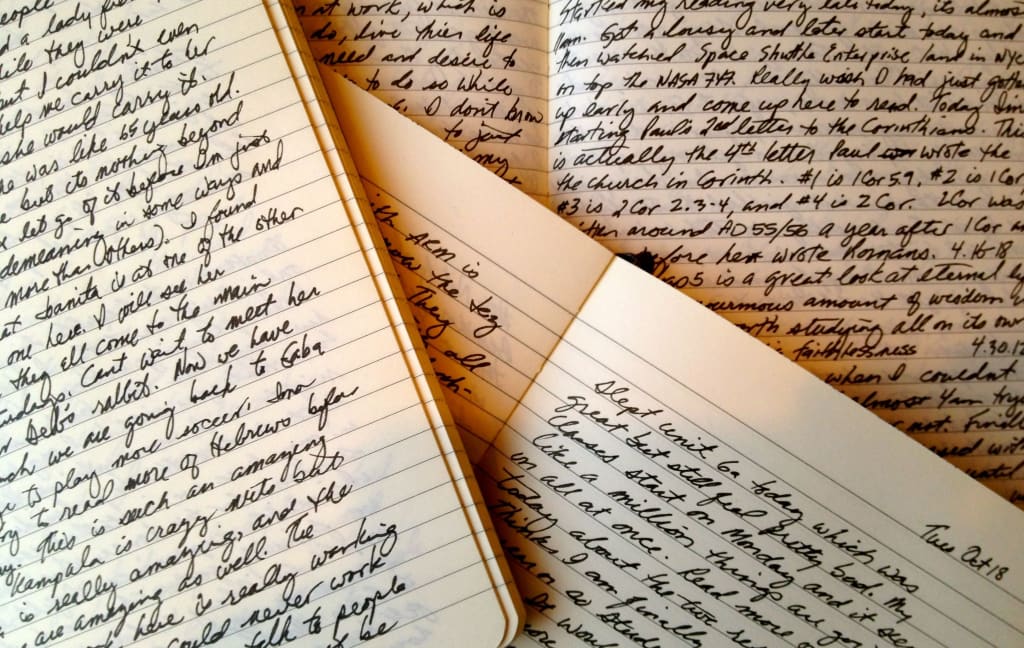 people
a lady
while they were
but I couldn't even
help me carry it to her
she would carry it.
he was like 65 years old.
but its nothing beyond
let go of it before I'm first
demeaning in some ways and
more than (others). I found
at Juanita is at one of the other
one here. I will see her
they all come to the main
Sundays. Can't want to meet her
Deb's rabbit. Now we have
we are going back to Gaba
to play more soccer. Imo
to read more of Hebrews before
This is such an amazing
Kampala is crazy nuts but
is really amazing, and the
are amazing as well. The
work here is really working
could never work
talk to people
be
at work, which is
do, live their life
need and desire to
to do so while
I don't know
to just
my
ARM is
the
They
all
Started my reading very late today, its almost
11am. Got a lousy and later start today and
then watched Space Shuttle Enterprise land in NYC
on top the NASA 747. Really wish I had just gotten
up early and come up here to read. Today I'm
starting Paul's 2nd letter to the Corinthians. This
is actually the 4th letter Paul wrote the
the church in Corinth. #1 is 1Cor 5.9, #2 is 1Cor
#3 is 2Cor 2.3-4, and #4 is 2Cor. 2Cor was
around AD 55/56 a year after 1Cor
before he wrote Romans. 4.16.18
is a great look at eternal
enormous amount of wisdom
worth studying all on its own
faithlessness 4.30.12
when I couldn't
almost 4am
not. Finally
wrote
Tues Oct 18
Slept until 6a today which was
great but still feel pretty bad. My
classes start on Monday and it
like a million things are
in all at once. Read more
today about the two
Thinks I am finally
as